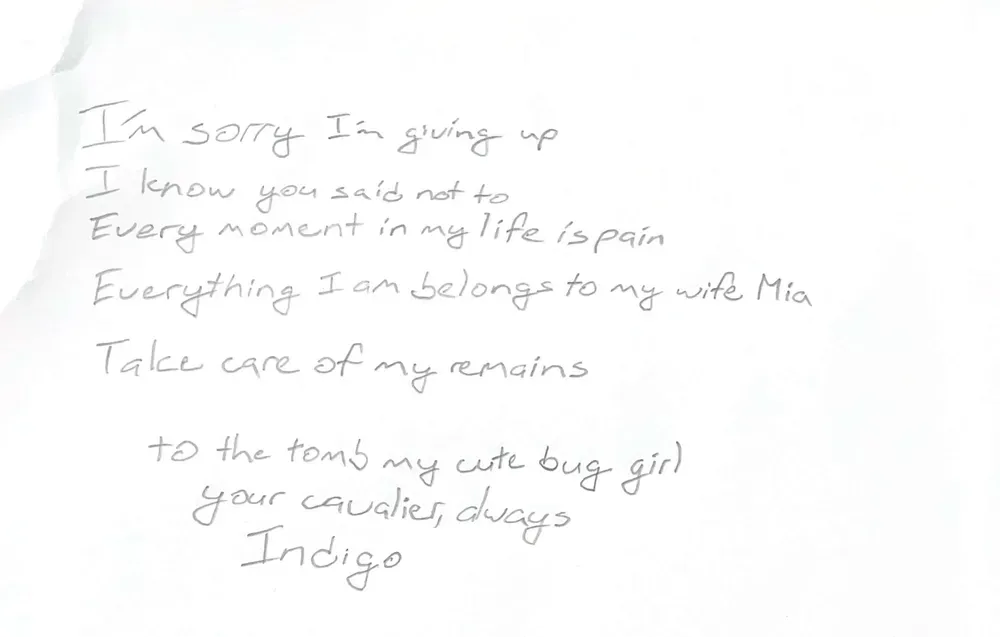 I'm sorry I'm giving up
I know you said not to
Every moment in my life is pain
Everything I am belongs to my wife Mia
Take care of my remains
to the tomb my cute bug girl
your cavalier, always
Indigo